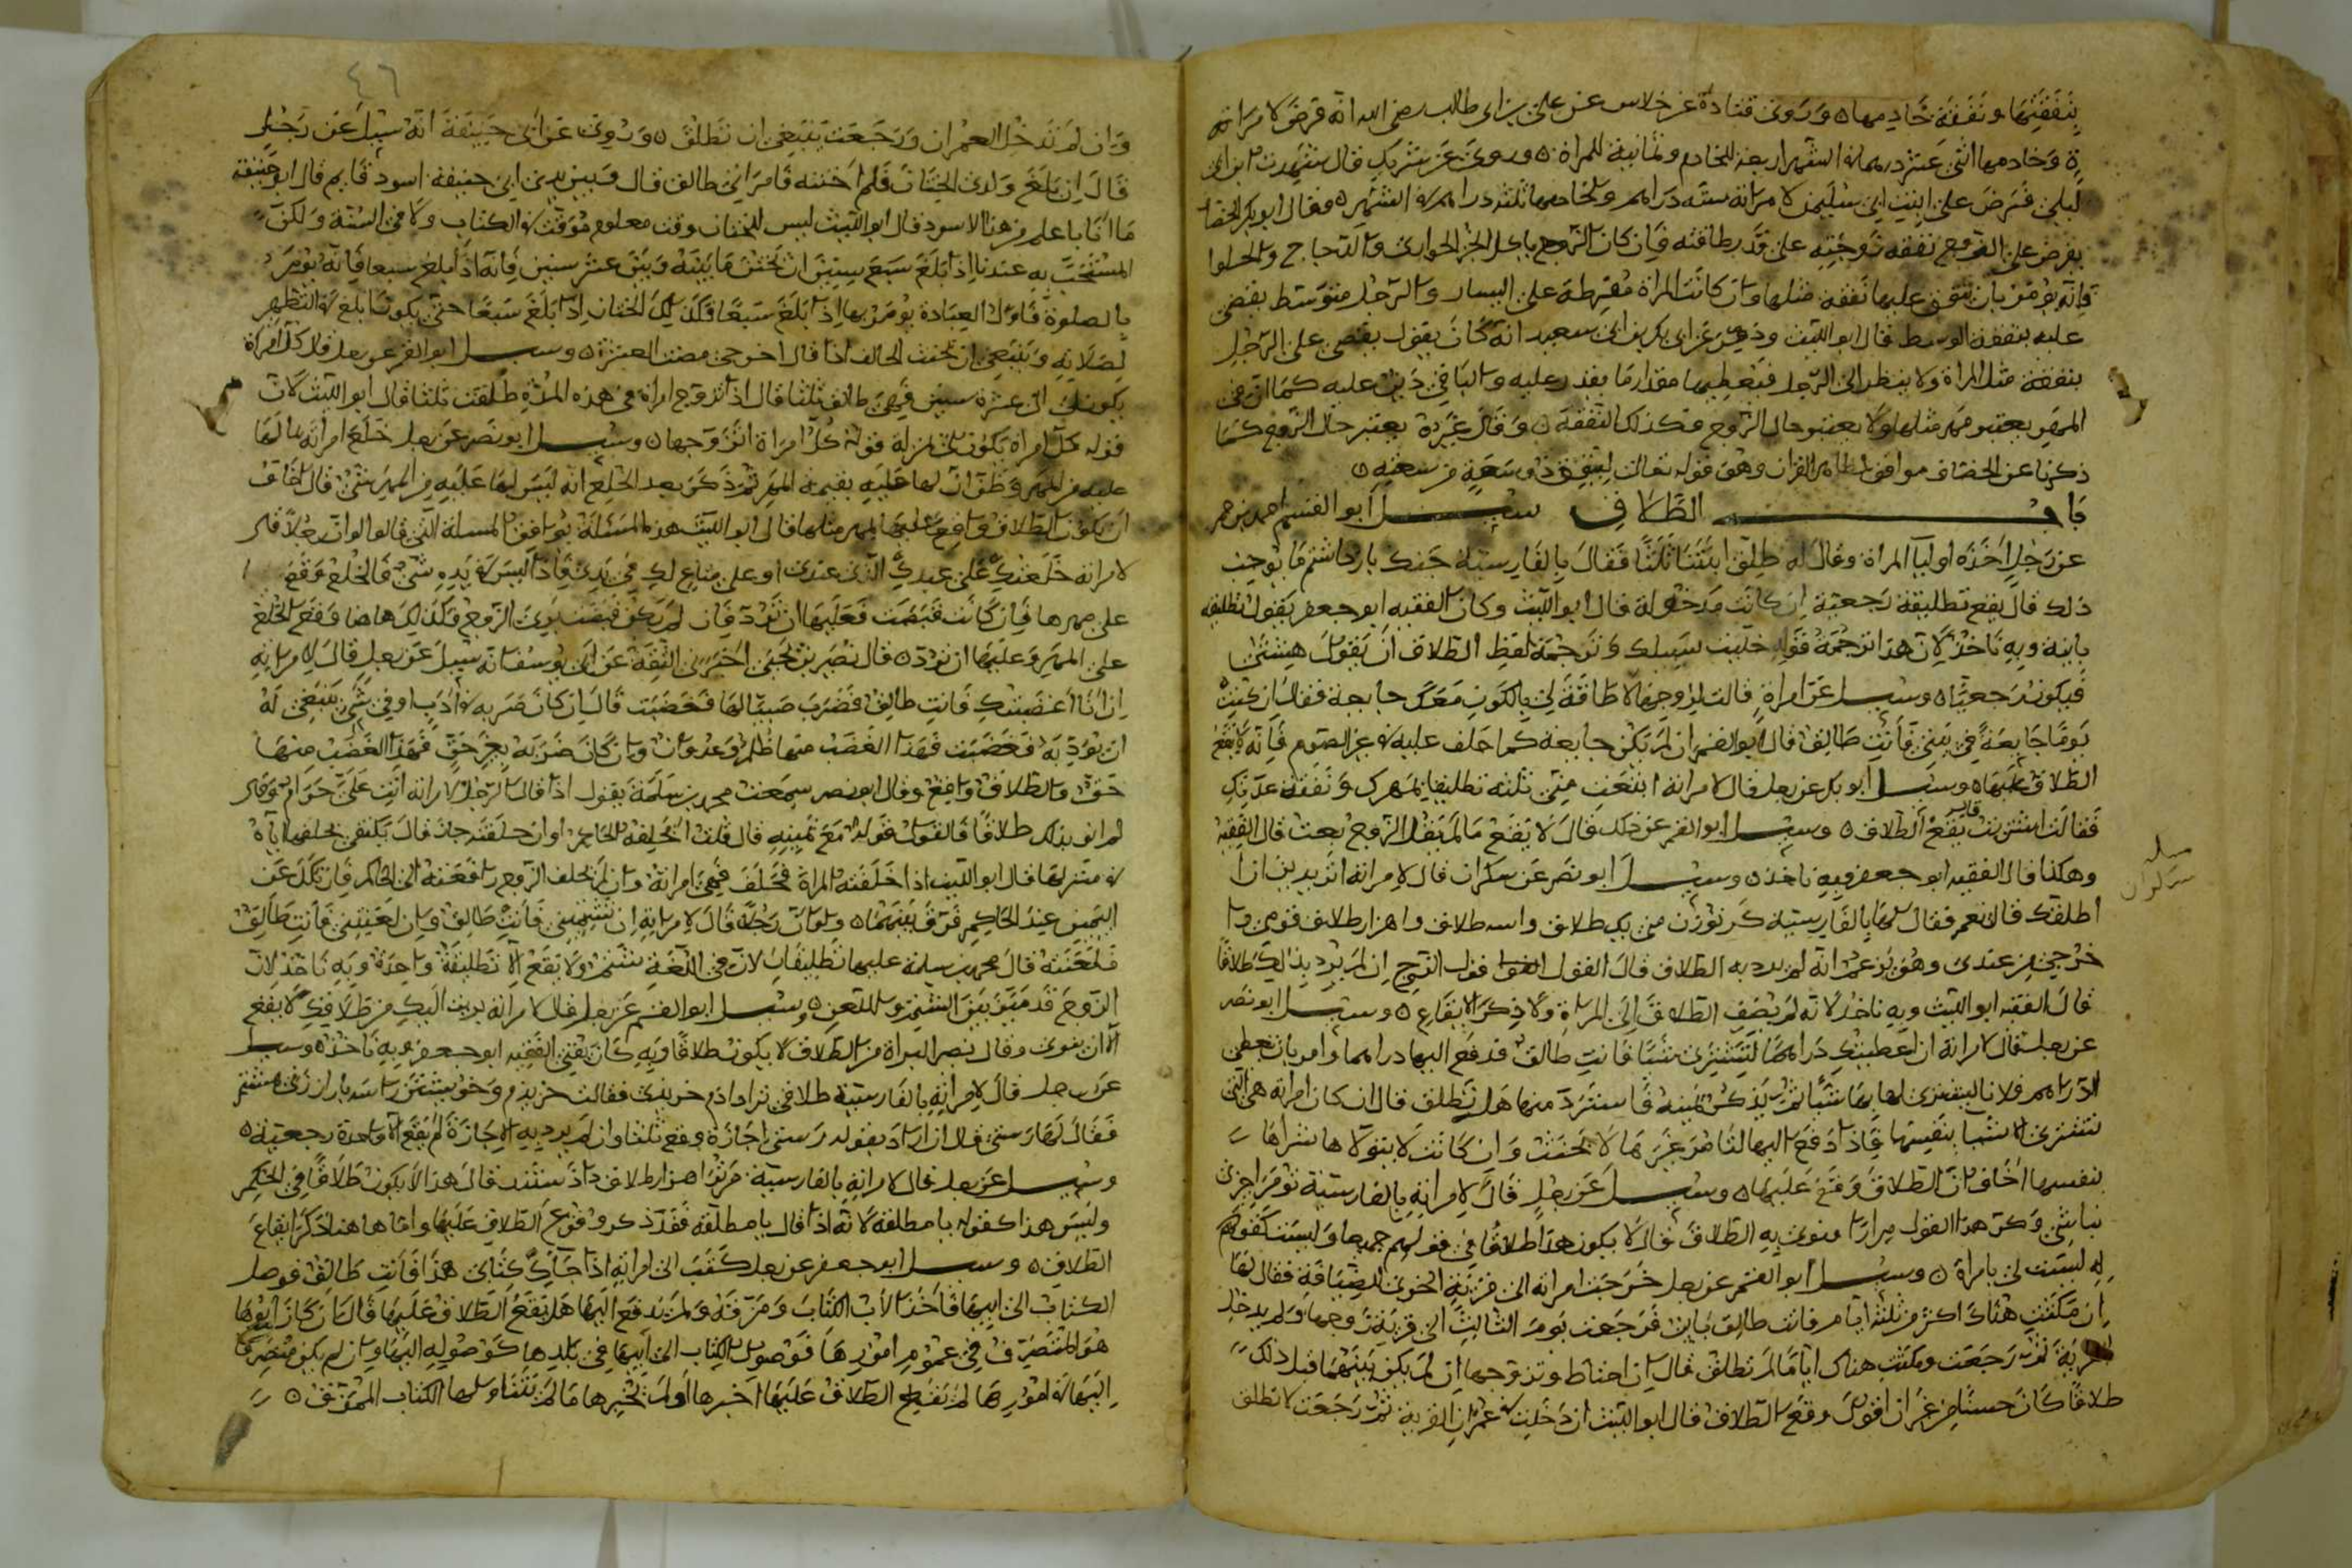 بنفقتها ونفقة خادمها ٥ وروى قتادة عن خلاس عن علي بن ابي طالب رضى الله انه فرض لامراته
وخادمها اثنى عشر درهما في الشهر اربعة للخادم وثمانية للمراة ٥ وروي عن شريك قال شهدت ابن ابي
ليلى فرض على ابنت ابي سليمن لامراته ستة دراهم ولخادمها ثلثة دراهم في الشهر ٥ وقال ابو بكر الخصاف
يفرض على الزوج نفقة زوجته على قدر طاقته فان كان الزوج ياكل الخبز الحوارى والدجاج والحلوا
فانه يؤمر بان ينفق عليها نفقة مثلها وان كانت المراة مفرطة على اليسار والرجل متوسط يقضى
عليه بنفقة الوسط قال ابو الليث وذكر عن ابي بكر بن ابي سعيد انه كان يقول يقضى على الرجل
بنفقة مثل المراة ولا ينظر الى الرجل فيعطيها مقدار ما يقدر عليه والباقي دين عليه كما ان في
المهر يعتبر مهر مثلها ولا يعتبر حال الزوج فكذلك النفقة ٥ وقال غيره يعتبر حال الزوج كما
ذكرنا عن الخصاف موافق لظاهر القران وهو قوله تعالى لينفق ذو سعة من سعته ٥
باب الطلاق سئل ابو القسم احمد بن حم
عن رجل اخذه اوليا المراة وقال له طلق ابنتنا ثلثا فقال بالفارسية جنك بازداشتم ما يوجب
ذلك قال يقع تطليقة رجعية ان كانت مدخولة قال ابو الليث وكان الفقيه ابو جعفر يقول تطليقة
باينة وبه ناخذ لان هذا ترجمة قوله خليت سبيلك وترجمة لفظ الطلاق ان يقول هشتى
فيكون رجعيا ٥ وسئل عن امراة قالت لزوجها لا طاقة لي بالكون معك جايعة فقال ان كنت
يوما جايعة في بيتي فانت طالق قال ابو القسم ان لم تكن جايعة كما حلف عليه في غير الصوم فانه لا يقع
الطلاق عليها ٥ وسئل ابو بكر عن رجل قال لامراته ابتعت مني ثلثة تطليقات بمهرك ونفقة عدتك
فقالت اشتريت يقع الطلاق ٥ وسئل ابو القسم عن ذلك قال لا يقع ما لم يقل الزوج بعت قال الفقيه
وهكذا قال الفقيه ابو جعفر وبه ناخذ ٥ وسئل ابو نصر عن سكران قال لامراته اتريدين ان
اطلقك قالت نعم فقال لها بالفارسية كر توزن مني يك طلاق واسه طلاق واهزار طلاق قومي وا
خرجي من عندى وهو يزعم انه لم يرد به الطلاق قال القول قول الزوج ان لم يرد بذلك طلاقا
قال الفقيه ابو الليث وبه ناخذ لانه لم يضف الطلاق الى المراة ولا ذكر الايقاع ٥ وسئل ابو نصر
عن رجل قال لامراته ان اعطيتك دراهما لتشترى شيا فانت طالق فدفع اليها دراهما وامر بان تعطي
الدراهم فلانا ليشترى لها بها شيا ثم يذكر يمينه فاسترد منها هل تطلق قال ان كان امراته هي التي
تشترى الاشيا بنفسها فاذا دفع اليها لتامر غيرها لا يحنث وان كانت لا يتولاها شراها
بنفسها اخاف ان الطلاق وقع عليها ٥ وسئل عن رجل قال لامراته بالفارسية تو مرا چيزى
نباشى وكرر هذا القول مرارا ونوى به الطلاق قال لا يكون هذا طلاقا في قولهم جميعا وليست كقولهم
لست لي بامراة ٥ وسئل ابو القسم عن رجل خرجت امراته الى قرية اخرى للضيافة فقال لها
ان مكثت هناك اكثر من ثلثة ايام فانت طالق باين فرجعت يوم الثالث الى قرية زوجها ولم يدخل
القرية ثم رجعت ومكثت هناك اياما لم تطلق قال ان احتاط وتزوجها ان لم يكن بينهما قبل ذلك
طلاقا كان حسنا من غير ان اقول وقع الطلاق قال ابو الليث ان دخلت في عمران القرية ثم رجعت لا تطلق
مسلة سكران
٤٦
وان لم تدخل العمران ورجعت ينبغي ان تطلق ٥ وروى عن ابي حنيفة انه سئل عن رجل
قال ان بلغ ولدى الختان فلم اختنه فامراتي طالق قال وبين يدى ابي حنيفة اسود قايم قال ابو حنيفة
ما انا باعلم من هذا الاسود قال ابو الليث ليس للختان وقت معلوم مؤقت في الكتاب ولا في السنة ولكن
المستحب به عندنا اذا بلغ سبع سنين ان يختن ما بينه وبين عشر سنين فانه اذا بلغ سبعا فانه يؤمر
بالصلوة فاول العبادة يؤمر بها اذا بلغ سبعا فكذلك الختان اذا بلغ سبعا حتى يكون ابلغ في التطهر
لصلاته وينبغي ان يحنث الحالف اذا قال اخرجي مضت العشرة ٥ وسئل ابو القسم عن رجل قال كل امراة
يكون لى الى عشرة سنين فهي طالق ثلثا قال اذا تزوج امراة في هذه المدة طلقت ثلثا قال ابو الليث لان
قوله كل امراة يكون لي بمنزلة قوله كل امراة اتزوجها ٥ وسئل ابو نصر عن رجل خلع امراته بمالها
عليه من المهر وظن ان لها عليه بقية المهر ثم ذكر بعد الخلع انه ليس لها عليه من المهر شئ قال اخاف
ان يكون الطلاق واقع عليها بمهر مثلها قال ابو الليث هذه المسئلة يوافق المسلة التي قالوا لو ان رجلا قال
لامراته خلعتك على عبدك الذى عندى او على متاع لك في يدى فاذا ليس في يده شئ فالخلع وقع
على مهرها فان كانت قبضت فعليها ان ترد فان لم يكن قبضت برئ الزوج فكذلك هاهنا وقع الخلع
على المهر وعليها ان ترد ٥ قال نصير بن يحيى اخبرني الثقة عن ابي يوسف انه سئل عن رجل قال لامراته
ان انا اغضبتك فانت طالق فضرب صبيا لها فغضبت قال ان كان ضربه في ادب او في شئ ينبغي له
ان يؤدبه فغضبت فهذا الغضب منها ظلم وعدوان وان كان ضربه بغير حق فهذا الغضب منها
حق والطلاق واقع وقال ابو نصر سمعت محمد بن سلمة يقول اذا قال الرجل لامراته انت على حرام وقال
لم انو بذلك طلاقا فالقول قوله مع يمينه قال قلت تحلفه الحاكم او ان حلفته جاز قال يكتفى بحلفها اياه
في منزلها قال ابو الليث اذا حلفته المراة فحلف فهي امراته وان لم يحلف الزوج رافعته الى الحاكم فان نكل عن
اليمين عند الحاكم فرق بينهما ٥ ولو ان رجلا قال لامراته ان شتمتني فانت طالق وان لعنتني فانت طالق
فلعنته قال محمد بن سلمة عليها تطليقتان لان في اللعنة شتم ولا يقع الا تطليقة واحدة وبه ناخذ لان
الزوج قد ميز بين الشتم واللعن ٥ وسئل ابو القسم عن رجل قال لامراته بريت اليك من طلاقك لا يقع
الا ان ينوى وقال نصر البراة من الطلاق لا يكون طلاقا وبه كان يفتي الفقيه ابو جعفر وبه ناخذ ٥ وسئل
عن رجل قال لامراته بالفارسية طلاق ترا دادم خريدى فقالت خريدم
فقال لها رستي قال ان اراد بقوله رستي اجازة وقع ثلثا وان لم يرد به الاجازة لم يقع الا واحدة رجعية ٥
وسئل عن رجل قال لامراته بالفارسية مر ترا هزار طلاق داذستند قال هذا لا يكون طلاقا في الحكم
وليس هذا كقوله يا مطلقة لانه اذا قال يا مطلقة فقد ذكر وقوع الطلاق عليها واما هاهنا ذكر ايقاع
الطلاق ٥ وسئل ابو جعفر عن رجل كتب الى امراته اذا جاك كتابى هذا فانت طالق فوصل
الكتاب الى ابيها فاخذ الاب الكتاب ومزقه ولم يدفع اليها هل يقع الطلاق عليها قال ان كان ابوها
هو المتصرف في عموم امورها فوصول الكتاب الى ابيها في بلدها كوصوله اليها وان لم يكن متصرفا
اليها في امورها لم يقع الطلاق عليها اخبرها او لم يخبرها ما لم يتناولها الكتاب الممزق ٥